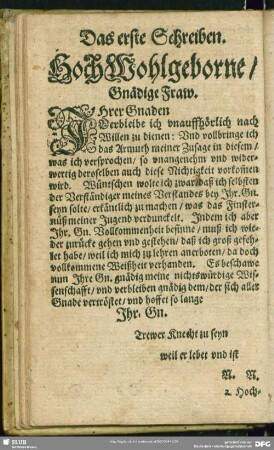 Das erste Schreiben.
HochWohlgeborne/
Gnädige Fraw.
IHrer Gnaden
Verbleibe ich vnauffhörlich nach
Willen zu dienen: Vnd vollbringe ich
das Armuth meiner Zusage in diesem/
was ich versprochen/ so vnangenehm vnd wider-
wertig deroselben auch diese Nichtigkeit vorkom̃en
wird. Wünschen wolte ich zwar/daß ich selbsten
der Verständiger meines Verstandes bey Ihr. Gn.
seyn solte/ erkäntlich zu machen/ was das Finster-
nüß meiner Jugend verdunckelt. Indem ich aber
Ihr. Gn. Vollkommenheit besinne/ muß ich wie-
der zurücke gehen vnd gestehen/ daß ich groß gefeh-
let habe/ weil ich mich zu lehren anerboten/ da doch
vollkommene Weißheit verhanden. Es beschawe
nun Ihre Gn. gnädig meine nichtswürdige Wis-
senschafft/ vnd verbleiben gnädig dem/ der sich aller
Gnade vertröstet/ vnd hoffet so lange
Ihr. Gn.
Trewer Knecht zu seyn
weil er lebet vnd ist
N. N.
2. Hoch-
SLUB